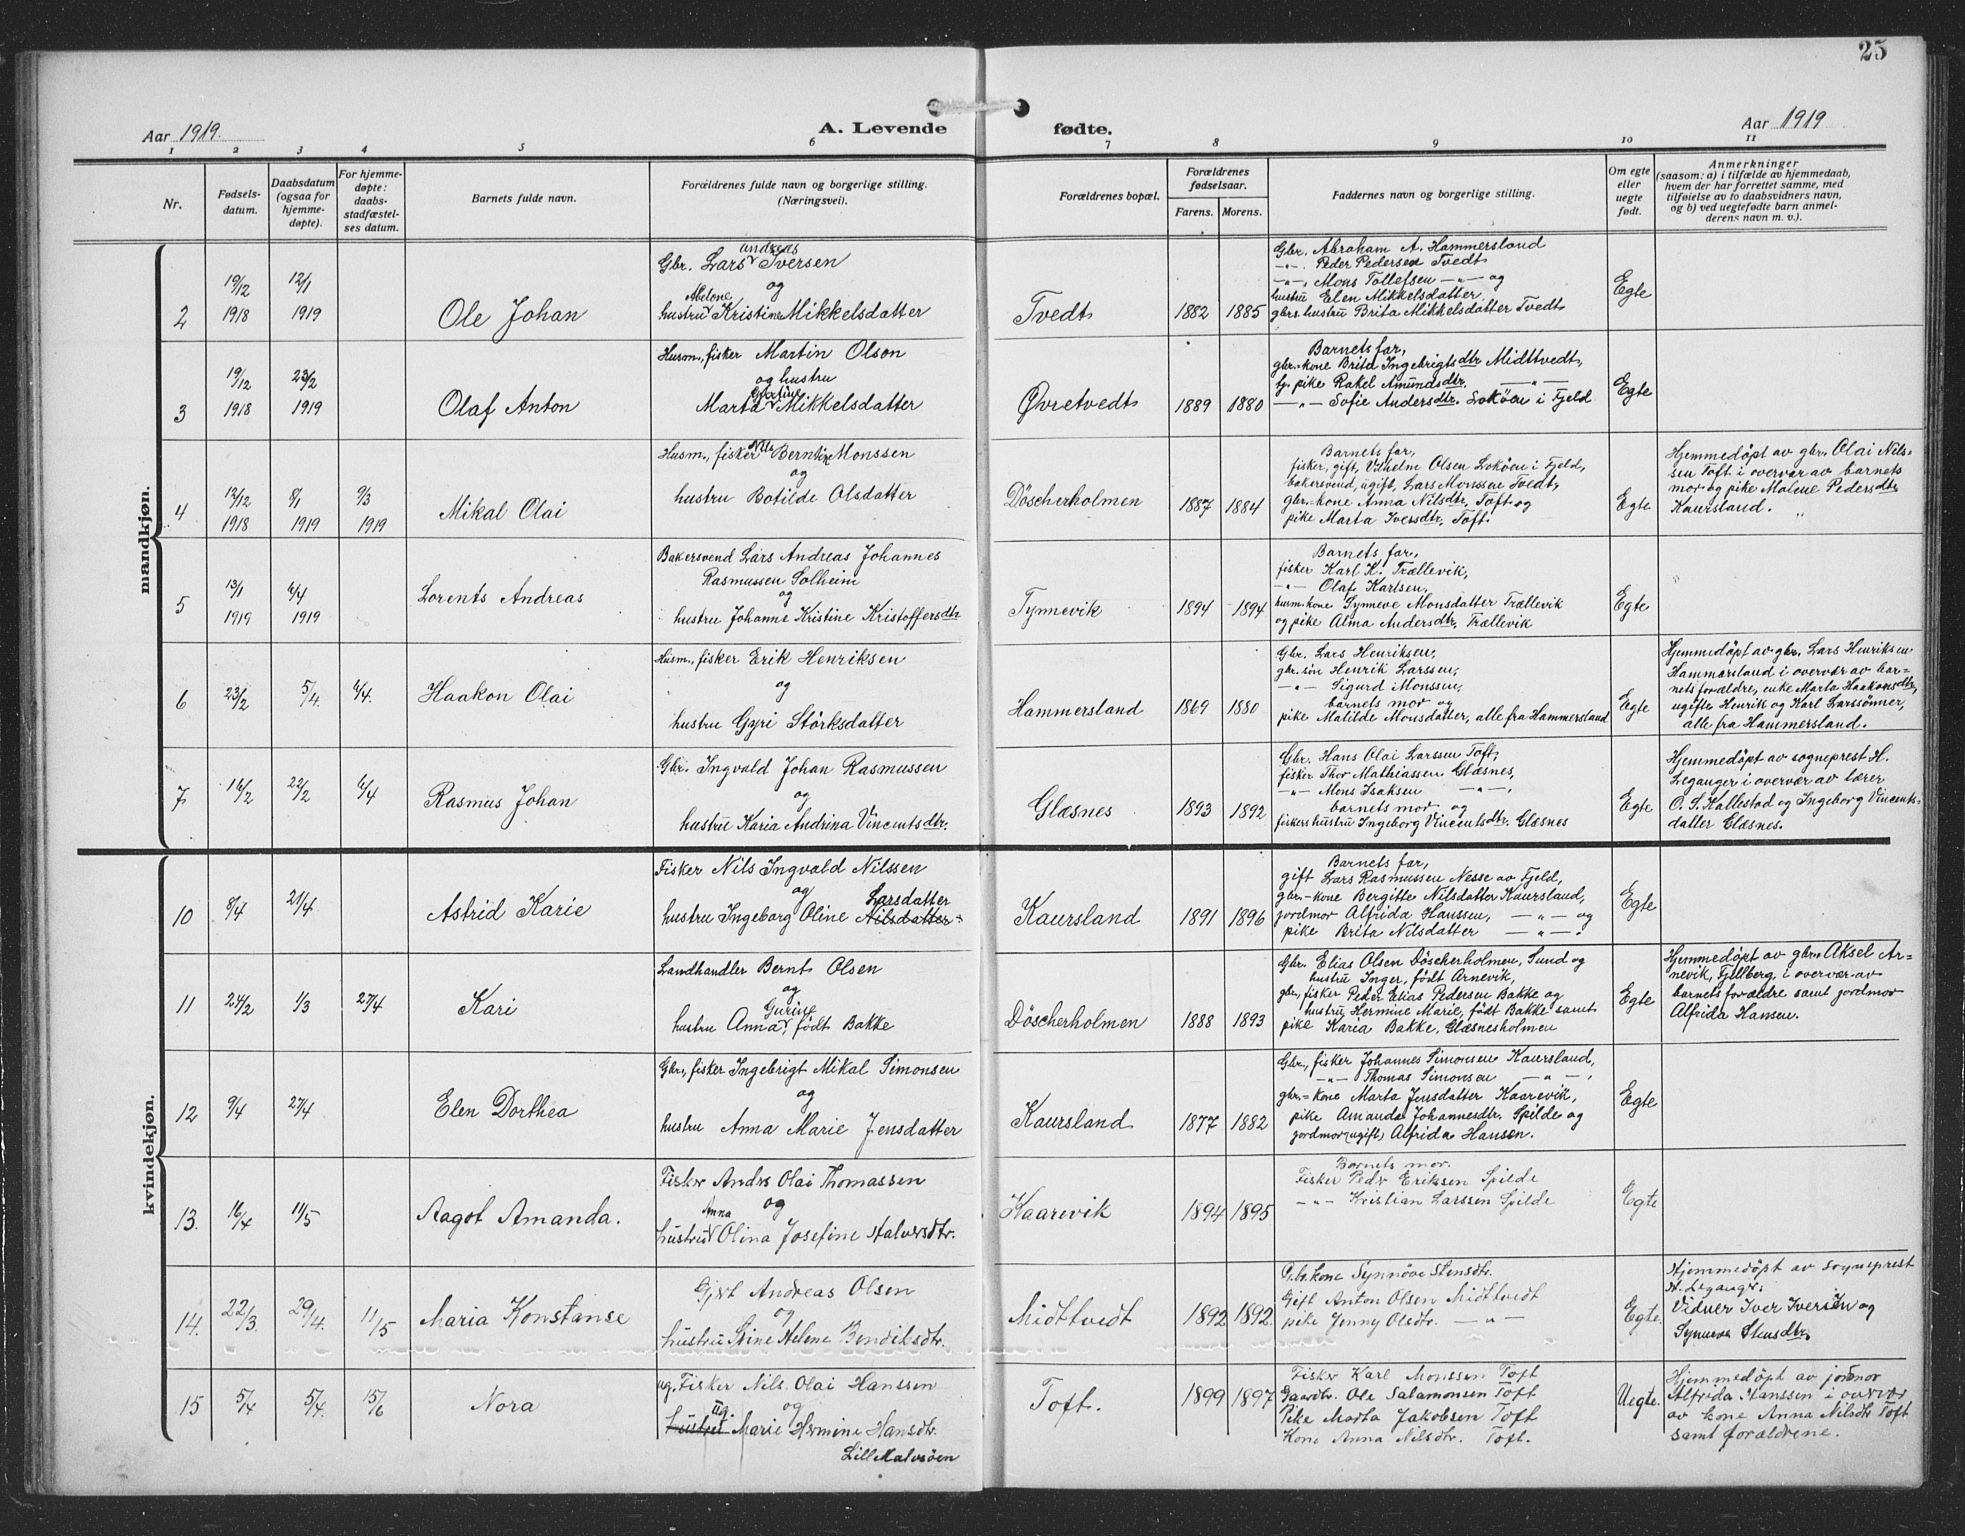 25
Aar 1919.
A. Levende fødte.
Aar 1919
1 2 3 4 5 6 7 8 9 10 11
Nr.
Fødsels-
datum.
Daabsdatum
(ogsaa for
hjemme-
døpte).
For hjemme-
døpte:
daabs-
stadfæstel-
ses datum.
Barnets fulde navn.
Forældrenes fulde navn og borgerlige stilling.
(Næringsvei).
Forældrenes bopæl.
Forældrenes
fødselsaar.
Farens. Morens.
Faddernes navn og borgerlige stilling.
Om egte
eller
uegte
født.
Anmerkninger
(saasom: a) i tilfælde av hjemmedaab,
hvem der har forrettet samme, med
tilføielse av to daabsvidners navn,
og b) ved uegtefødte barn anmel-
derens navn m. v.).
mandkjøn.
2
19/12
1918
12/1
1919
Ole Johan
Andreas
Gbr. Lars Iversen
og
Abelone
hustru Kristine Mikkelsdatter
Tvedt
1882 1885
Gbr. Abraham A. Hammersland
-„- Peder Pedersen Tvedt
-„- Mons Tollefsen -„- og
hustru Elen Mikkelsdatter
gbrs. hustru Brita Mikkelsdatter Tvedt
Egte
3
19/12
1918
23/2
1919
Olaf Anton
Husm., fisker Martin Olson
og hustru
Marta Mikkelsdatter
Øvretvedt
1889 1880
Barnets far,
gbr.-kone Brita Ingebrigtsdtr Midttvedt,
pike Rakel Amundsdtr. -„-
-„- Sofie Andersdtr. Lokøen i Fjeld
Egte
4
12/12
1918
8/1
1919
9/3
1919
Mikal Olai
Nils
Husm., fisker Berntin Monssen
og
hustru Botilde Olsdatter
Döscherholmen
1887 1884
Barnets far,
fisker, gift, Vilhelm Olsen Lokøen i Fjeld,
bakersvend, ugift, Lars Monssen Tvedt,
gbr.-kone Anna Nilsdtr. Toft og
pike Marta Iversdtr. Toft
Egte
Hjemmedöpt av gbr. Olai Nils-
sen Toft i overvær av barnets
mor og pike Malene Pedersdtr
Kaursland.
5
13/1
1919
6/4
1919
Lorents Andreas
Bakersvend Lars Andreas Johannes
Rasmussen Solheim
og
hustru Johanne Kristine Kristoffersdtr
Tynnevik
1894 1894
Barnets far,
fisker Karl K. Trællevik,
-„- Olaf Karlsen,
husm.kone Synneve Monsdatter Trællevik
og pike Alma Andersdtr, Trællevik
Egte
6
23/2
5/4.
6/4.
Haakon Olai
Husm., fisker Erik Henriksen
og
hustru Gyri Störksdatter
Hammersland
1869 1880
Gbr. Lars Henriksen,
gbr. søn Henrik Larssen,
-„- Sigurd Monssen,
barnets mor og
pike Matilde Monsdatter, alle fra Hammersland
Egte
Hjemmedöpt av gbr. Lars Henriksen
Hammersland i overvær av bar-
nets forældre, enke Marta Haakonsdtr,
ugifte Henrik og Karl Larssönner,
alle fra Hammersland.
7
16/2
22/2
6/4
Rasmus Johan
Gbr. Ingvald Johan Rasmussen
og
hustru Karia Andrina Vincentsdtr.
Glæsnes
1893 1892
Gbr. Hans Olai Larssen Toft,
fisker Thor Mathiassen Glæsnes,
-„- Mons Isaksen -„-,
barnets mor og
fiskers hustru Ingeborg Vincentsdtr. Glæsnes
Egte
Hjemmedöpt av sogneprest H.
Leganger i overvær av lærer
O. S. Kallestad og Ingeborg Vincents-
datter Glæsnes.
kvindekjøn.
10
8/4
21/4
Astrid Karie
Fisker Nils Ingvald Nilssen
og Larsdatter
hustru Ingeborg Oline Nilsdatter
Kaursland
1891 1896
Barnets far,
gift Lars Rasmussen Nesse av Fjeld,
gbr.-kone Bergitte Nilsdatter Kaursland,
jordmor Alfrida Hanssen, -„- og
pike Brita Nilsdatter -„-.
Egte
11
24/2
1/3
27/4
Kari
Landhandler Bernt Olsen
og
Gurine
hustru Anna, født Bakke
Döscherholmen
1888 1893
Gbr. Elias Olsen Döscherholmen, Sund og
hustru Inger, født Arnevik,
gbr., fisker Peder Elias Pedersen Bakke og
hustru Hermine Marie, født Bakke samt
pike Karia Bakke, Glæsnesholmen
Egte
Hjemmedöpt av gbr. Aksel Ar-
nevik, Fjellberg, i overvær av
barnets forældre samt jordmor
Alfrida Hansen.
12
9/4
27/4
Elen Dorthea
Gbr., fisker Ingebrigt Mikal Simonsen
og
hustru Anna Marie Jensdatter
Kaursland
1877 1882
Gbr., fisker Johannes Simonsen Kaursland,
-„- Thomas Simonsen -„-,
gbr.-kone Marta Jensdatter Kaarevik,
pike Amanda Johannesdtr. Spilde og
jordmor (ugift) Alfrida Hansen.
Egte
13.
16/4
11/5
Aagot Amanda.
Fisker Andrs Olai Thomassen
og
Anna
hustru Olina Josefine Halvorsdtr.
Kaarevik
1894 1895
Barnets mor.
Fisker Pedr Eriksen Spilde
-„- Kristian Larssen Spilde
Egte
14.
22/3.
29/4.
11/5
Maria Konstanse
Gjert Andreas Olsen
og
hustru Stine Helene Bendiksdtr.
Midttvedt
1892 1892
Gbr.kone Synnöve Stensdtr.
Gift Anton Olsen Midttvedt
pike Jenny Olsdtr. -„-
Egte.
Hjemmedöpt av sogneprest
H. Legangr.
Vidner Iver Iversen og
Synneve Stensdtr.
15
5/4
5/4.
15/6
Nora
ug. Fisker Nils Olai Hanssen
og
ug.
hustru Marie Hermine Hansdtr.
Lille Kalvsöen
Toft.
1899 1897
Fisker Karl Monssen Toft
Gaardbr. Ole Salamonsen Toft
Pike Marta Jakobsen Toft
Kone Anna Nilsdtr. Toft.
Uegte.
Hjemmedöpt av jordmor
Alfrida Hanssen i overvær
av kone Anna Nilsdtr Toft
samt forældrene.